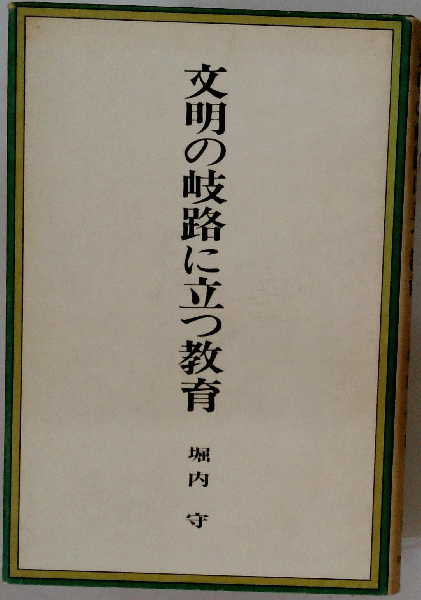 文明の岐路に立つ教育
堀内守